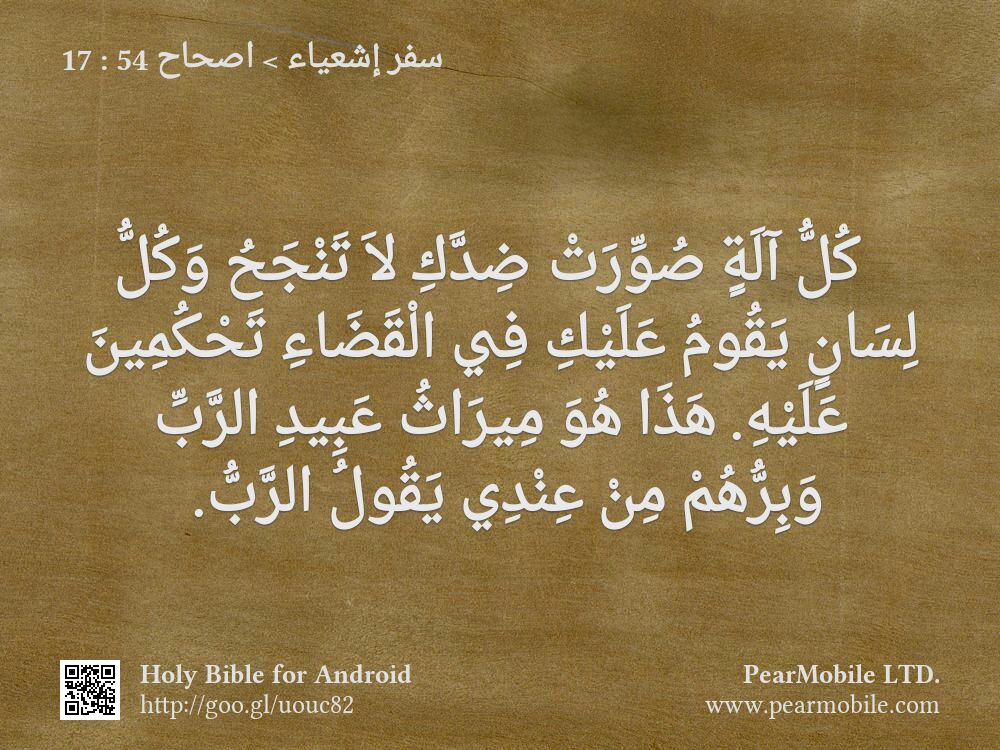 سفر إشعياء > اصحاح 54 : 17
كُلُّ آلَةٍ صُوِّرَتْ ضِدَّكِ لاَ تَنْجَحُ وَكُلُّ
لِسَانٍ يَقُومُ عَلَيْكِ فِي الْقَضَاءِ تَحْكُمِينَ
عَلَيْهِ. هَذَا هُوَ مِيرَاثُ عَبِيدِ الرَّبِّ
وَبِرُّهُمْ مِنْ عِنْدِي يَقُولُ الرَّبُّ.
Holy Bible for Android
http://goo.gl/uouc82
PearMobile LTD.
www.pearmobile.com